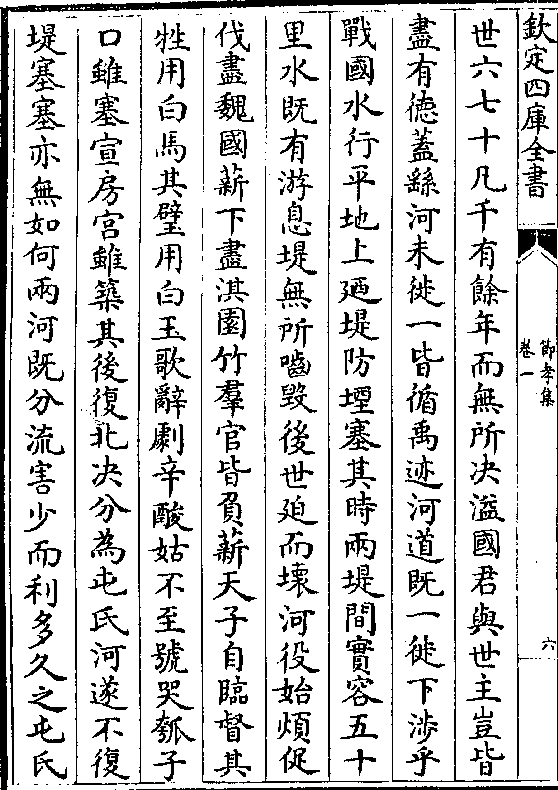 欽定四庫全書
節孝集
卷一
六
世六七十凡千有餘年而無所決溢國君與世主豈皆
盡有德蓋繇河未徙一皆循禹迹河道既一徙下渉乎
戰國水行平地上廼堤防堙塞其時兩堤間實容五十
里水既有游息堤無所嚙毀後世廹而壊河役始煩促
伐盡魏國薪下盡淇園竹羣官皆負薪天子自臨督其
牲用白馬其璧用白玉歌辭劇辛酸姑不至號哭瓠子
口雖塞宣房宫雖築其後復北决分為屯氏河遂不復
堤塞塞亦無如何兩河既分流害少而利多久之屯氏